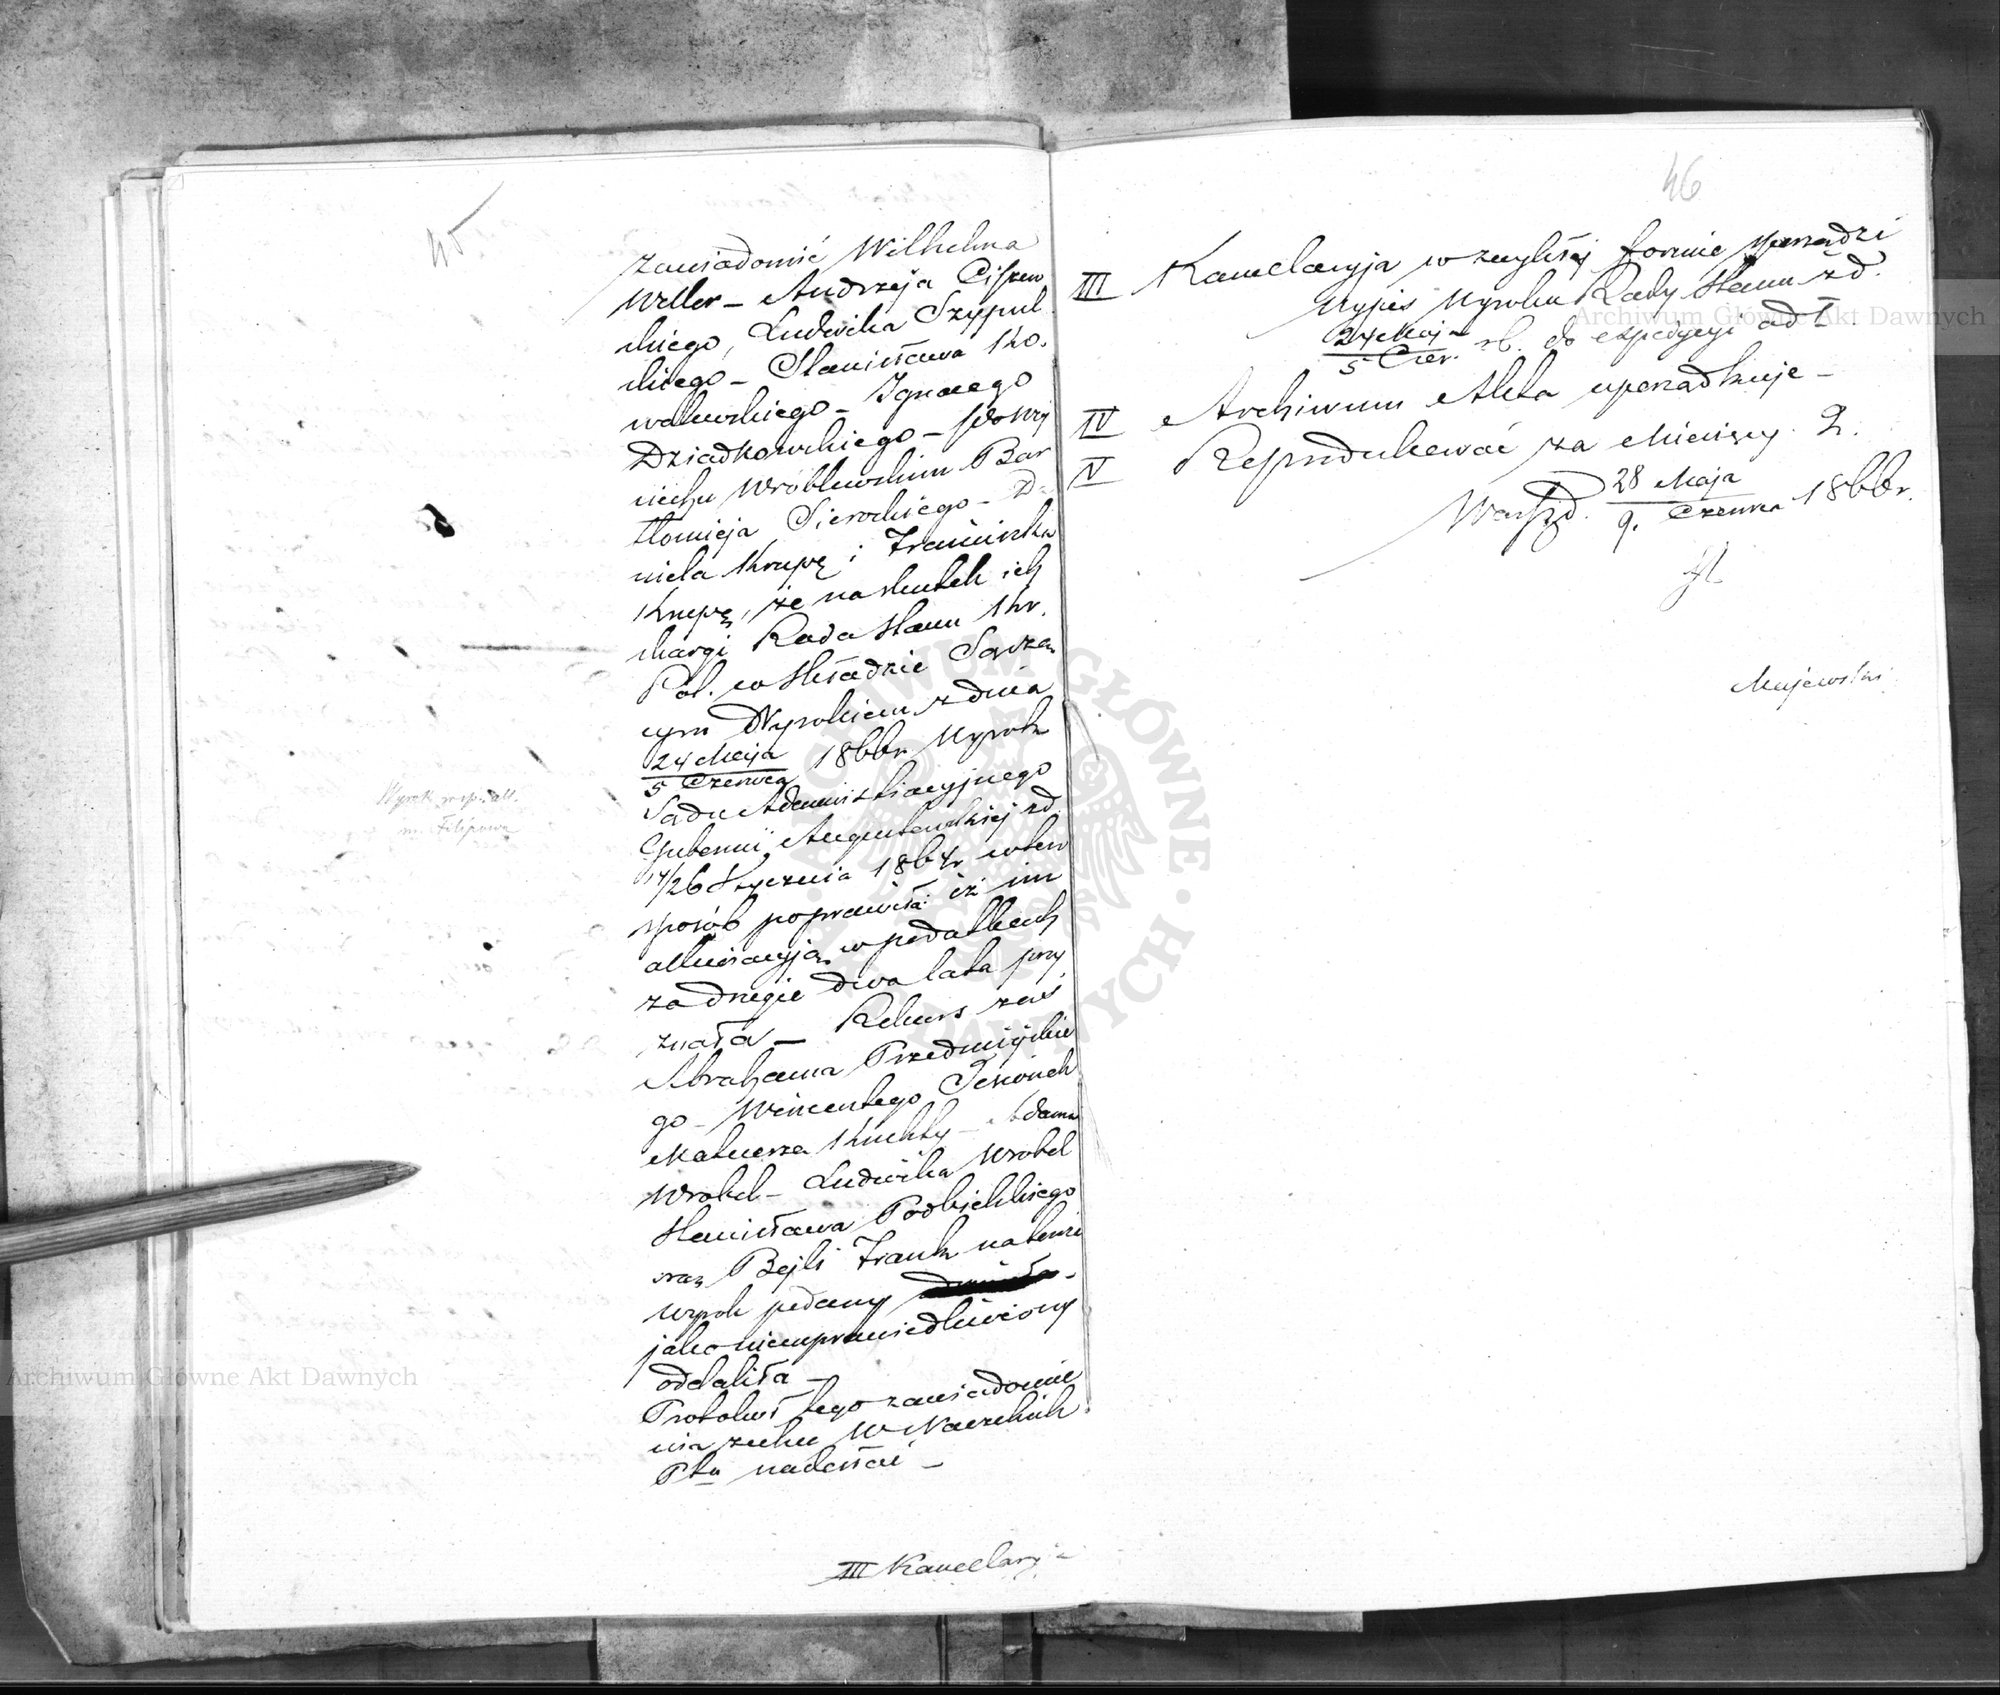 45
zawiadomić Wilhelma
Weller – Andrzeja Ciszew
skiego, Ludwika Szypul
skiego – Stanisława Ko
walewskiego – Ignacego
Dziadkowskiego – Wojcj
niechu Wróblewskim Bar
tłomieja Sierockiego – Da
niela Krupę i Franciszka
Krupę, że na skutek ich
skargi Rada Stanu Kr.
Pol. w składzie Sądzą
cym Wyrokiem z dnia
24 Maja
5 Czerwca 1866 r. Wyrok
Sądu Administracyjnego
Gubernii Augustowskiej z d.
14/26 Stycznia 1864 r. w ten
sposób poprawiła: iż im
allewiacyją w podatkach
za drugie dwa lata przy
znała – Rekurs zaś
Abrahama Przedmiejskie
go – Wincentego Jesionek
Mateusza Kuchty – Adama
Wrobel – Ludwika Wrobel
Stanisława Podbielskiego
oraz Bejli Frank na tenże
wyrok podany
jako nieusprawiedliwiony
oddaliła –
Protokuł tego zawiadomie
nia zechce W Naczelnik
Ptu nadesłać –
Wyrok wsp. all.
m. Filipowa
III Kancelaryja
46
III Kancelaryja w zwykłej formie sporządzi
Wypis Wyroku Rady Stanu z d.
24 Maja
5 Czer. r. b. do expedycyi ad I.
IV Archiwum Akta uporządkuje –
V Reprodukować za Miesięcy 2.
Warsz d. 28 Maja
9. Czerwca 1866 r.
Majewski
Archiwum Główne Akt Dawnych
Archiwum Główne Akt Dawnych
ARCHIWUM GŁÓWNE AKT DAWNYCH